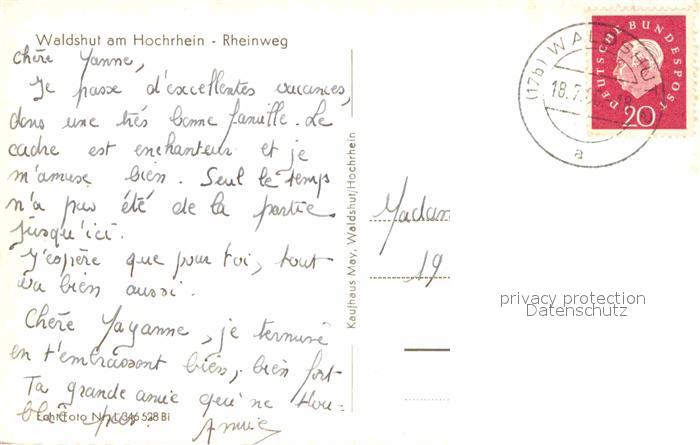 Waldshut am Hochrhein - Rheinweg
Chère Yanne,
Je passe d'excellentes vacances,
dans une très bonne famille. Le
cadre est enchanteur et je
m'amuse bien. Seul le temps
n'a pas été de la partie
jusqu'ici.
J'espère que pour toi, tout
va bien aussi.
Chère Yayanne, je termine
en t'embrassant bien, bien fort
Ta grande amie qui ne t'ou-
blie pas. Annie
Echt Foto Nr. L 346 528 Bi
Kaufhaus May, Waldshut/Hochrhein
(17b) WALDSHUT
18.7.
a
DEUTSCHE BUNDESPOST
20
Madam
19
privacy protection
Datenschutz